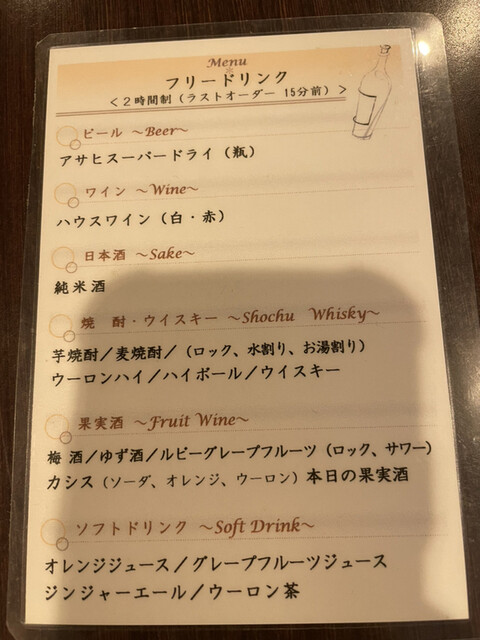 Menu
フリードリンク
＜2時間制（ラストオーダー 15分前）＞
ビール ～Beer～
アサヒスーパードライ（瓶）
ワイン ～Wine～
ハウスワイン（白・赤）
日本酒 ～Sake～
純米酒
焼 酎・ウイスキー ～Shochu Whisky～
芋焼酎／麦焼酎／（ロック、水割り、お湯割り）
ウーロンハイ／ハイボール／ウイスキー
果実酒 ～Fruit Wine～
梅 酒／ゆず酒／ルビーグレープフルーツ（ロック、サワー）
カシス（ソーダ、オレンジ、ウーロン）本日の果実酒
ソフトドリンク ～Soft Drink～
オレンジジュース／グレープフルーツジュース
ジンジャーエール／ウーロン茶